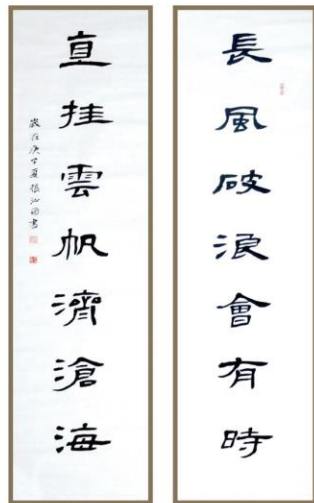 長風破浪會有時
直挂雲帆濟滄海
歲在庚子夏張沁園書